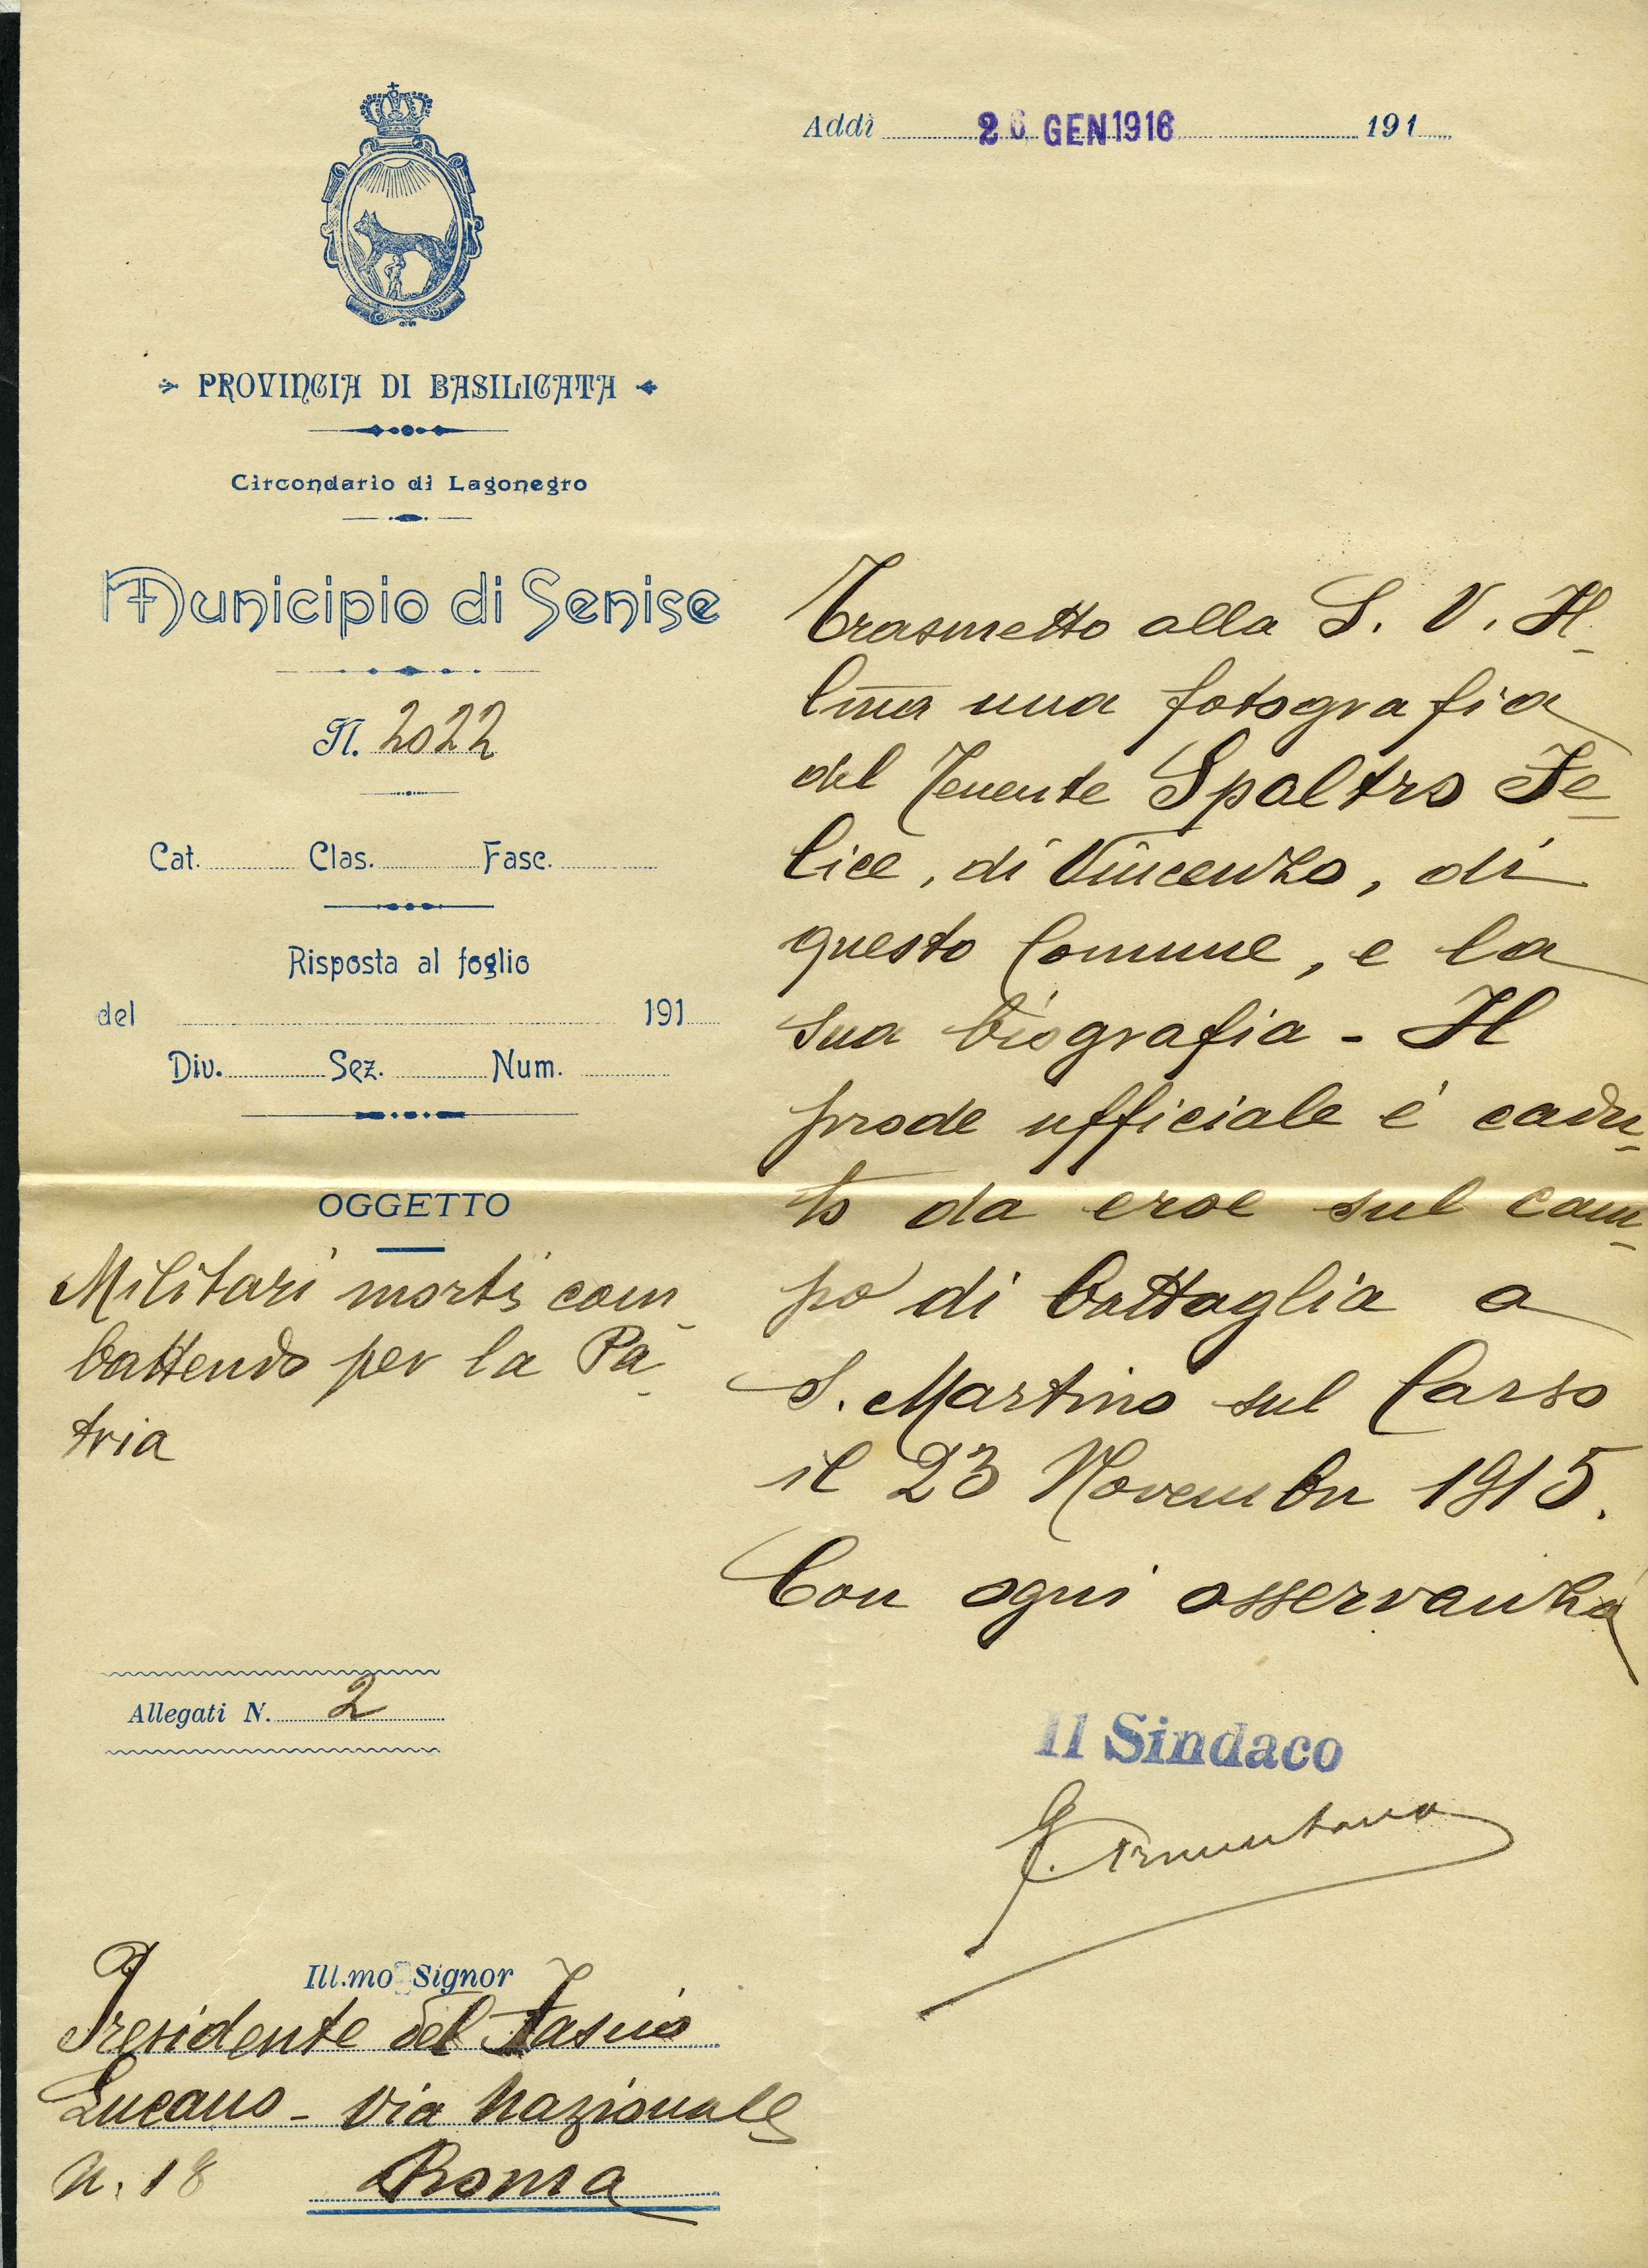 Addì 26 GEN 1916 191
PROVINCIA DI BASILICATA
Circondario di Lagonegro
Municipio di Senise
N. 2022
Cat. Clas. Fasc.
Risposta al foglio
del 191
Div. Sez. Num.
OGGETTO
Militari morti com-
battendo per la Pa-
tria
Allegati N. 2
Ill.mo Signor
Presidente del Fascio
Lucano - Via Nazionale
N. 18 Roma
Trasmetto alla S. V. Il-
lma una fotografia
del Tenente Spaltro Fe-
lice, di Vincenzo, di
questo Comune, e la
sua biografia - Il
prode ufficiale è cadu-
to da eroe sul cam-
po di battaglia a
S. Martino sul Carso
il 23 Novembre 1915.
Con ogni osservanza
Il Sindaco